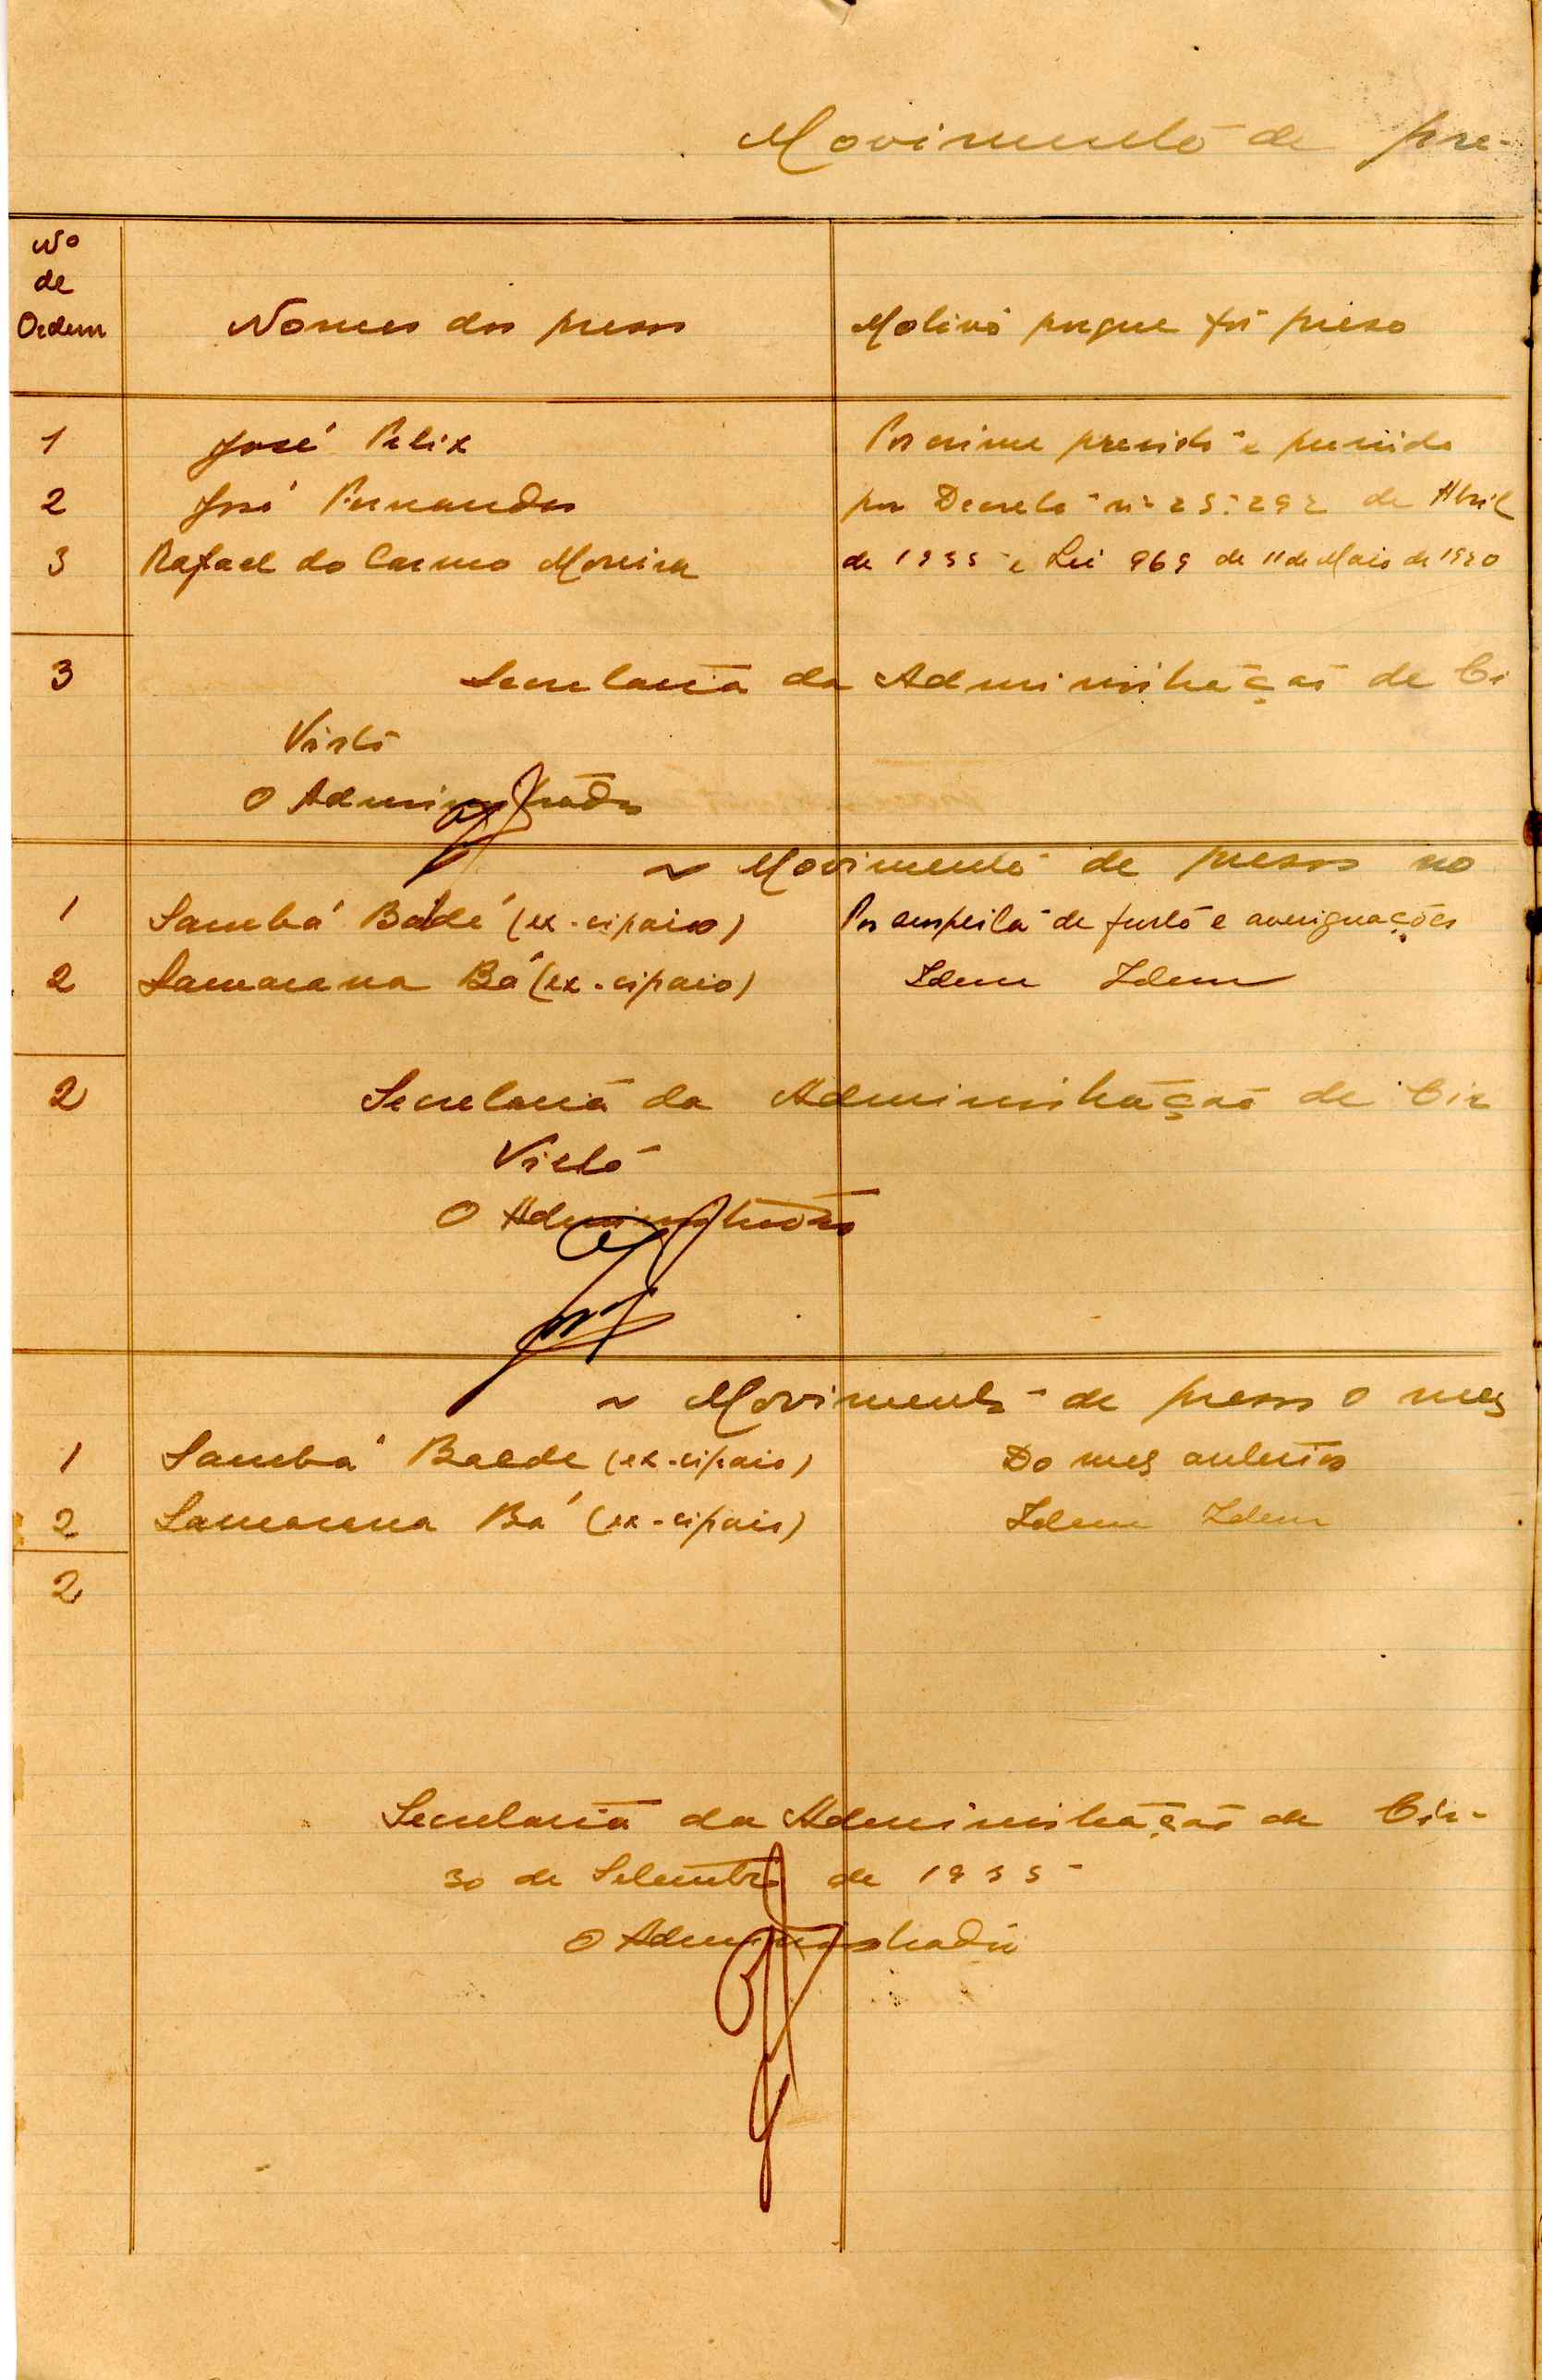 Movimento de pre-
No
de
Ordem
Nomes dos presos
Motivo porque foi preso
1 José Felix Por crime previsto e punido
2 José Fernandes por Decreto nº 25:292 de Abril
3 Rafael do Carmo Moreira de 1935 e Lei 969 de 11 de Maio de 1920
3 Secretaria da Administração de Ci
Visto
O Administrador
~ Movimento de presos no
1 Sambá Baldé (ex-cipaio) Por suspeita de furto e averiguações
2 Samarana Bá (ex-cipaio) Idem Idem
2 Secretaria da Administração de Cir
Visto
O Administrador
~ Movimento de presos o mes
1 Sambá Balde (ex-cipaio) Do mes anterior
2 Samarana Bá (ex-cipaio) Idem Idem
2
Secretaria da Administração de Cir-
30 de Setembro de 1935
O Administrador